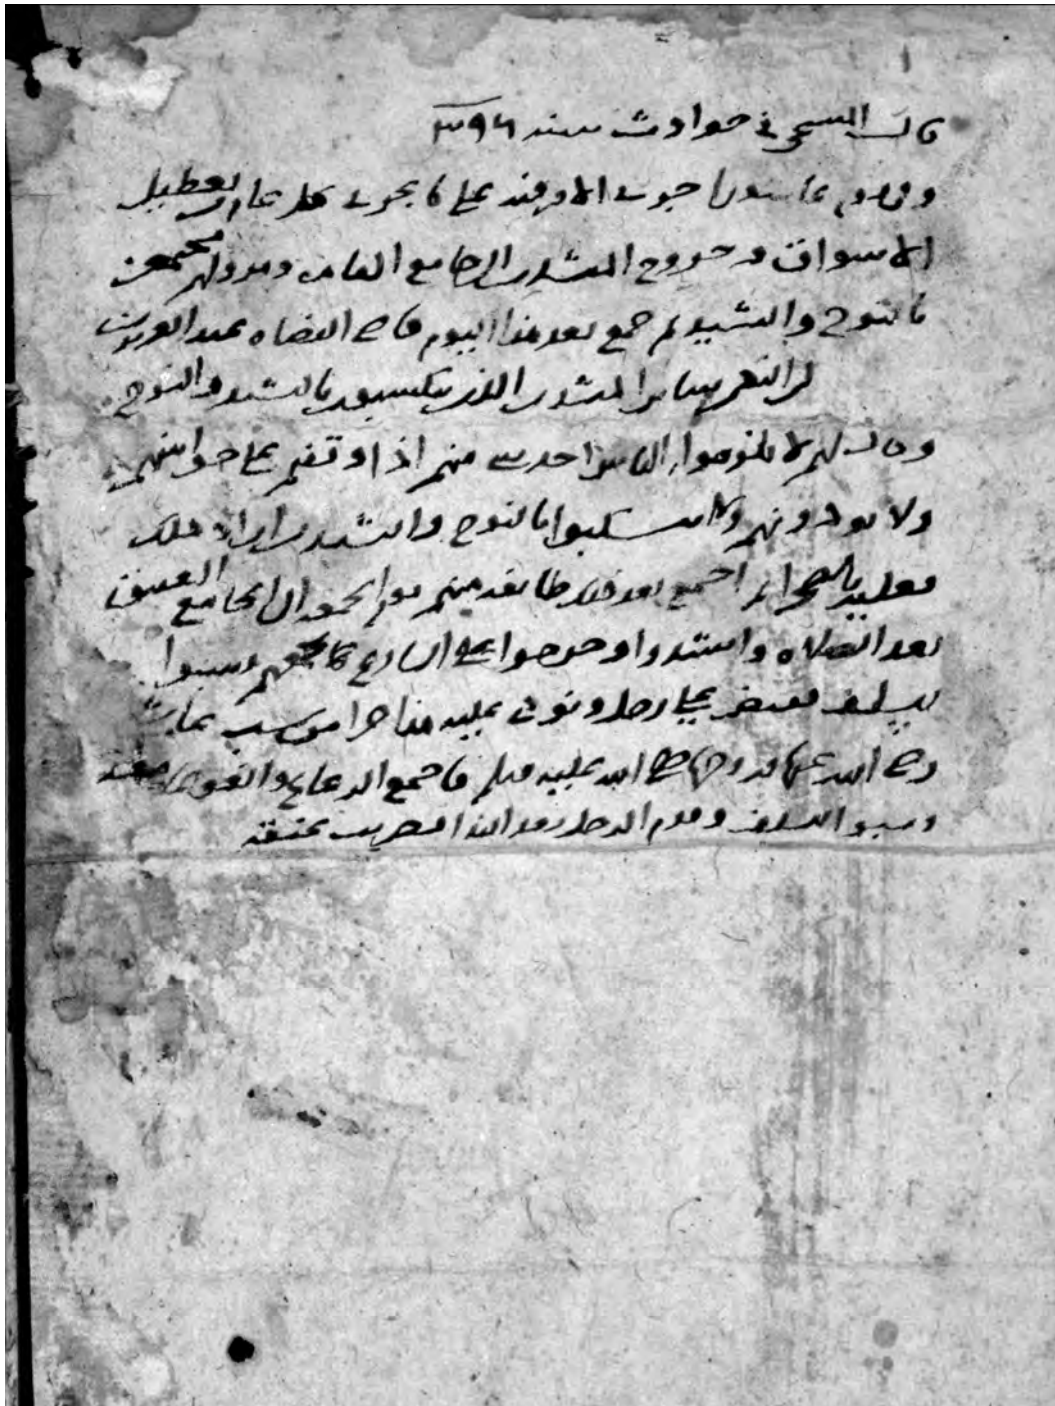 قال المسبحي في حوادث سنة ٣٩٦
وفي يوم عاشورا جرى الامر فيه على ما يجري كل عام من تعطيل
الاسواق وخروج المنشدين الى جامع القاهرة ونزولهم مجتمعين
بالنوح والنشيد ثم جمع بعد هذا اليوم قاضي القضاه عبد العزيز بن
النعمن سائر المنشدين الذين يتكسبون بالنشيد والنوح
وقال لهم لا تلزموا الناس اخذ شي منهم اذا وقفتم على حوانيتهم
ولا تؤذونهم ولا تتكسبوا بالنوح والنشيد ومن اراد ذلك
فعليه بالصحرا ثم اجتمع بعد ذلك طايفه منهم يوم الجمعه في الجامع العتيق
بعد الصلاه وانشدوا وخرجوا على الشارع بجمعهم وسبوا
السلف فقبض على رجل ونودي عليه هذا جزا من سب عائشة
رضي الله عنها وزوجها صلى الله عليه وسلم
وسبوا السلف وقدم الرجل بعد النداء فضربت عنقه